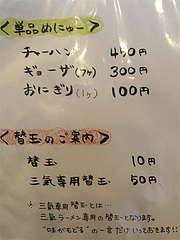 <単品めにゅー>
チャーハン 450円
ギョーザ(7ヶ) 300円
おにぎり(1ヶ) 100円
<替玉のご案内>
替玉 10円
三氣専用替玉 50円
* 三氣専用替玉とは…
三氣ラーメン専用の替玉となります。
"味がもどる"の一言だけいっておきます!!